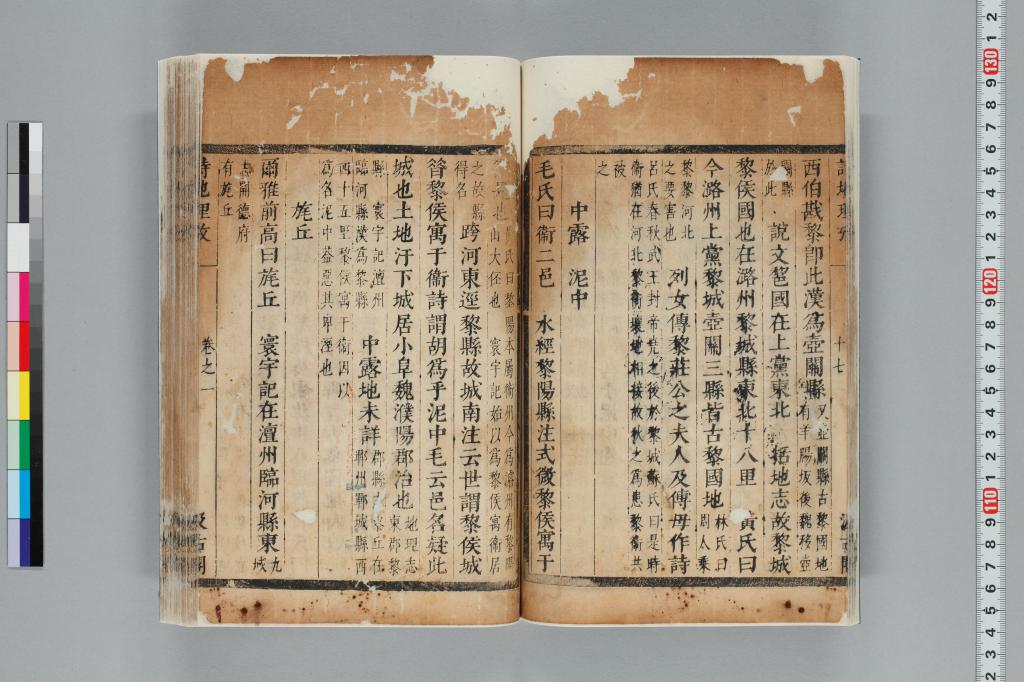 詩地理攷 十七 汲古閣
西伯戡黎卽此漢爲壺關縣
又壺關縣古黎國地
有羊腸坂後魏移壺
關縣
於此
說文䣓國在上黨東北 括地志故黎城
黎侯國也在潞州黎城縣東北十八里 黃氏曰
今潞州上黨黎城壺關三縣皆古黎國地
林氏曰
周人乘
黎黎河北
之要害也
列女傳黎莊公之夫人及傅母作詩
呂氏春秋武王封帝堯之後於黎城蘇氏曰是時
衛猶在河北黎衛壤地相接故狄之爲患黎衛共
被
之
中露 泥中
毛氏曰衛二邑 水經黎陽縣注式微黎侯寓于
氏曰黎陽本屬衛州今爲濬州有黎陽
山大伾也 寰宇記始以爲黎侯寓衛居
之故縣
得名
跨河東逕黎縣故城南注云世謂黎侯城
昝黎侯寓于衛詩謂胡爲乎泥中毛云邑名疑此
城也土地汙下城居小阜魏濮陽郡治也
地理志
東郡黎
縣 寰宇記澶州
臨河縣漢爲黎縣
中露地未詳
郡縣志黎丘在
鄆州鄆城縣西
四十五里黎侯寓于衛因以
爲名泥中葢惡其卑溼也
旄丘
爾雅前高曰旄丘 寰宇記在澶州臨河縣東
九
城
志開德府
有旄丘
詩地理攷 卷之一 汲古閣